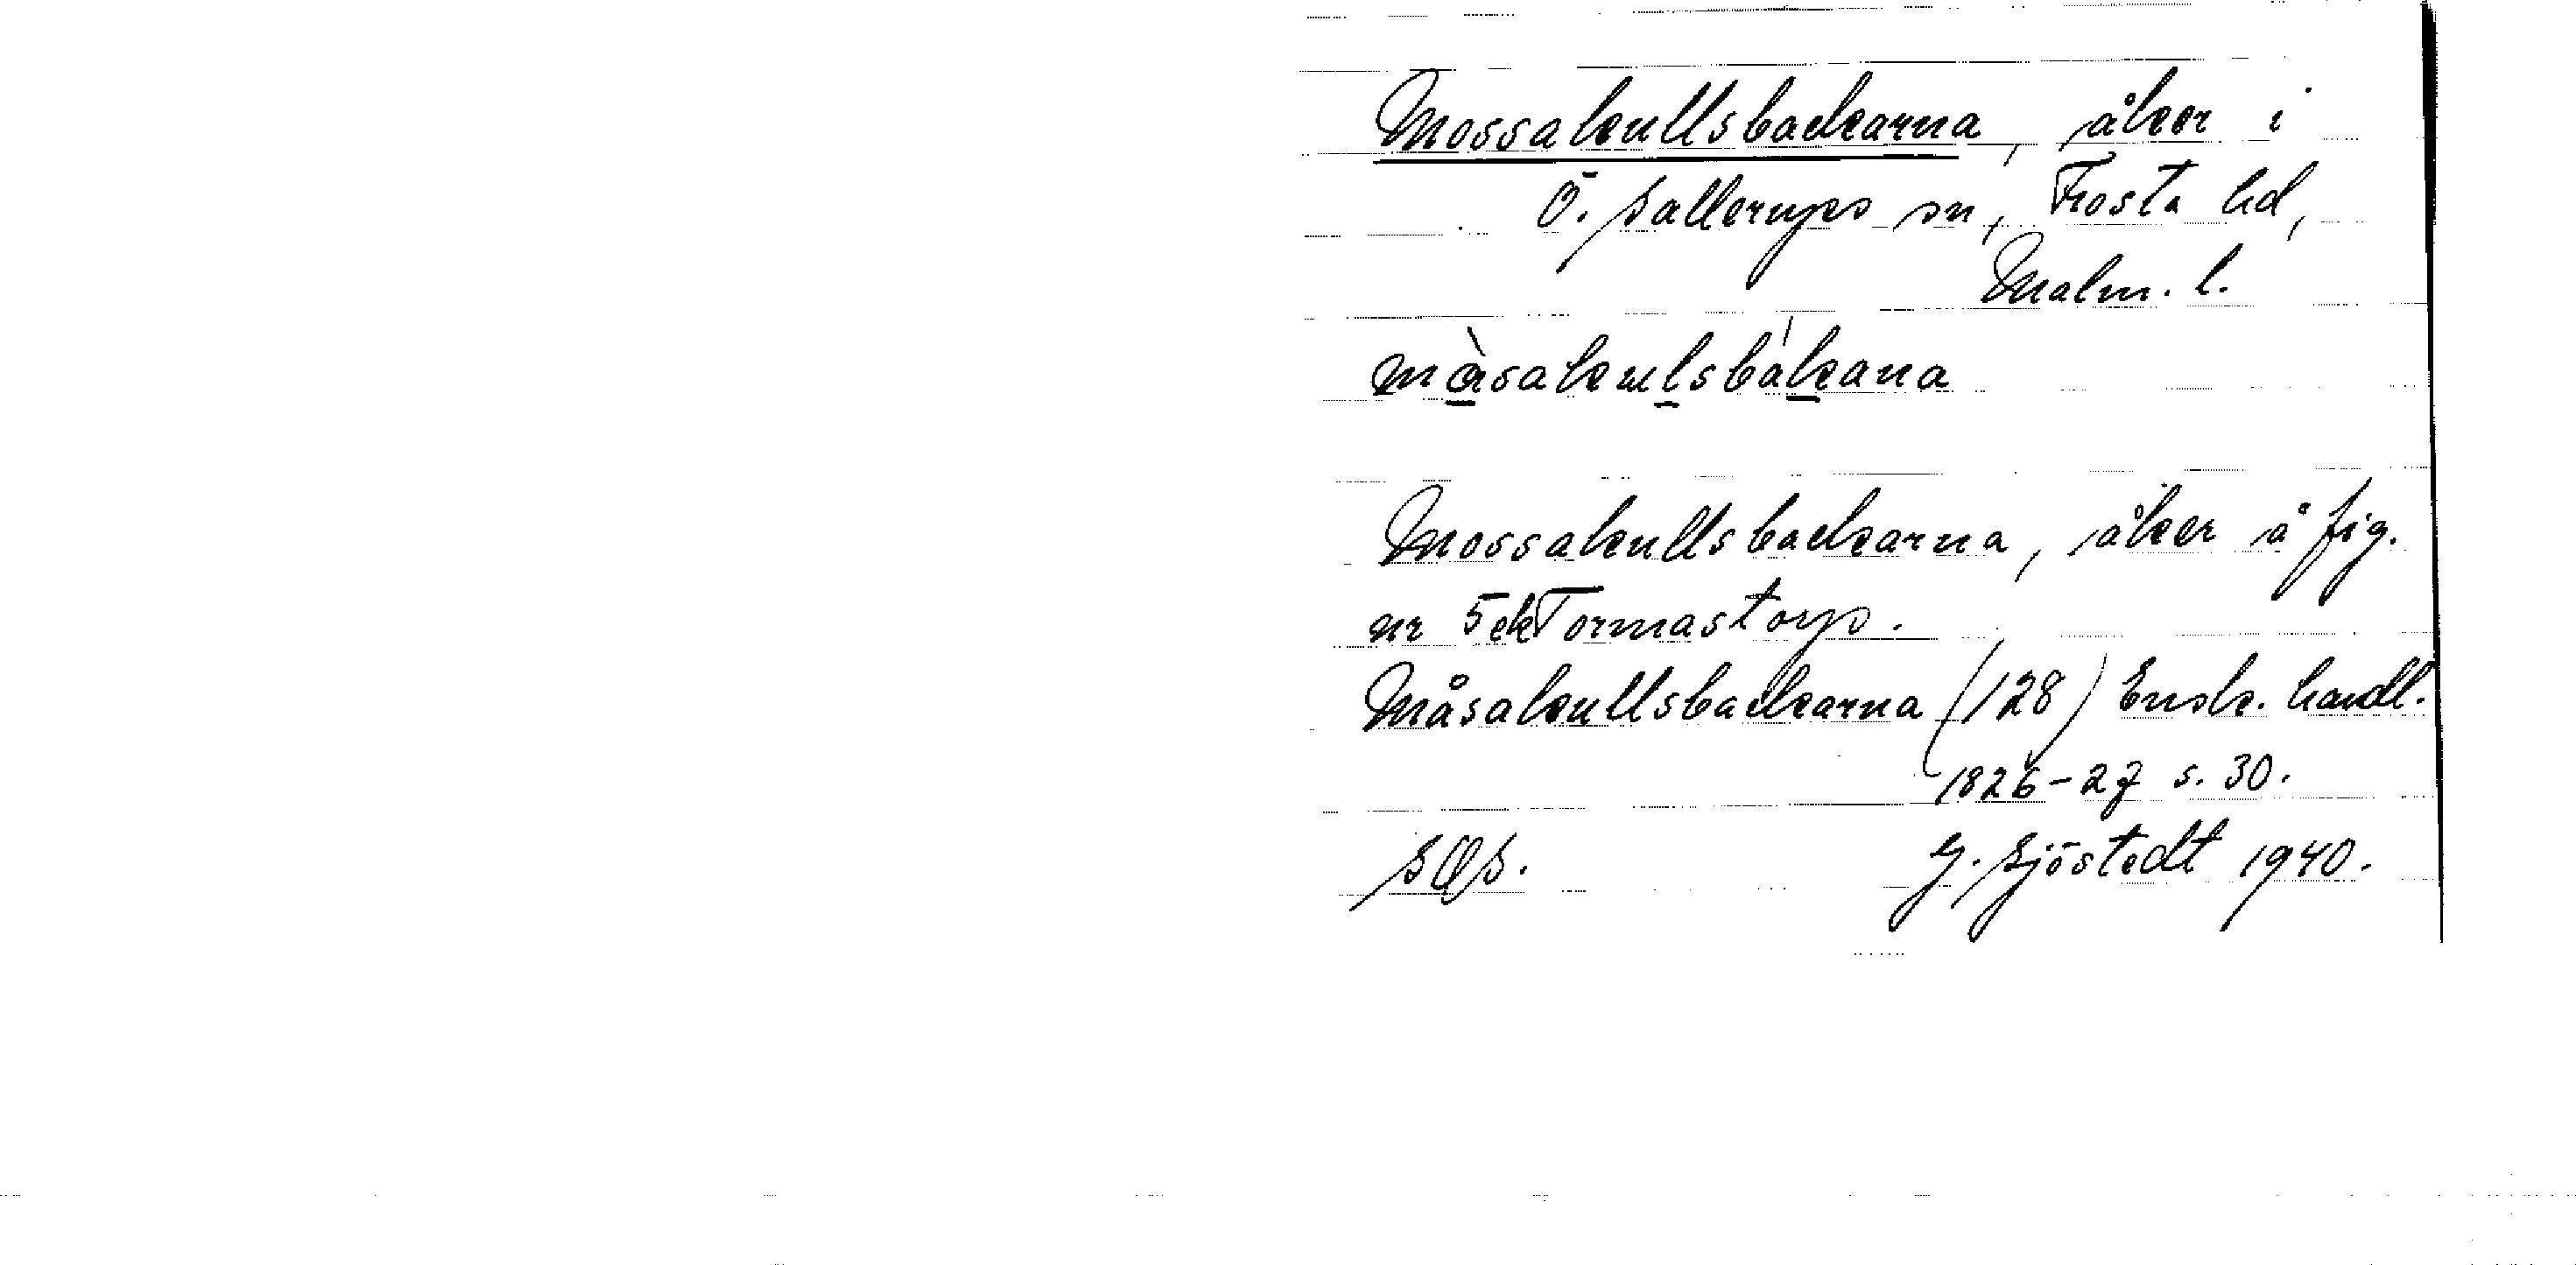 Mossakullsbackarna, åker i
Ö. Sallerups sn, Frosta hd,
Malm. l.
màsakulsbákana
Mossakullsbackarna, åker å fig.
nr 5ek Tormastorp.
Måsakullsbackarna (128) Ensk. handl.
1826-27 s. 30.
SOS.
G. Sjöstedt 1940.